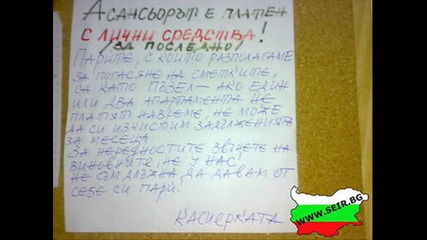 Асансьорът е платен
с лични средства!
/за последно/
Парите, с които разполагаме
за погасяне на сметките,
са като пъзел – ако един
или два апартамента не
платят навреме, не може
да си изчистим задълженията
за месеца
За нередностите звънете на
виновните, не у нас!
Не съм длъжна да давам от
себе си пари!
Касиерката
www.seir.bg